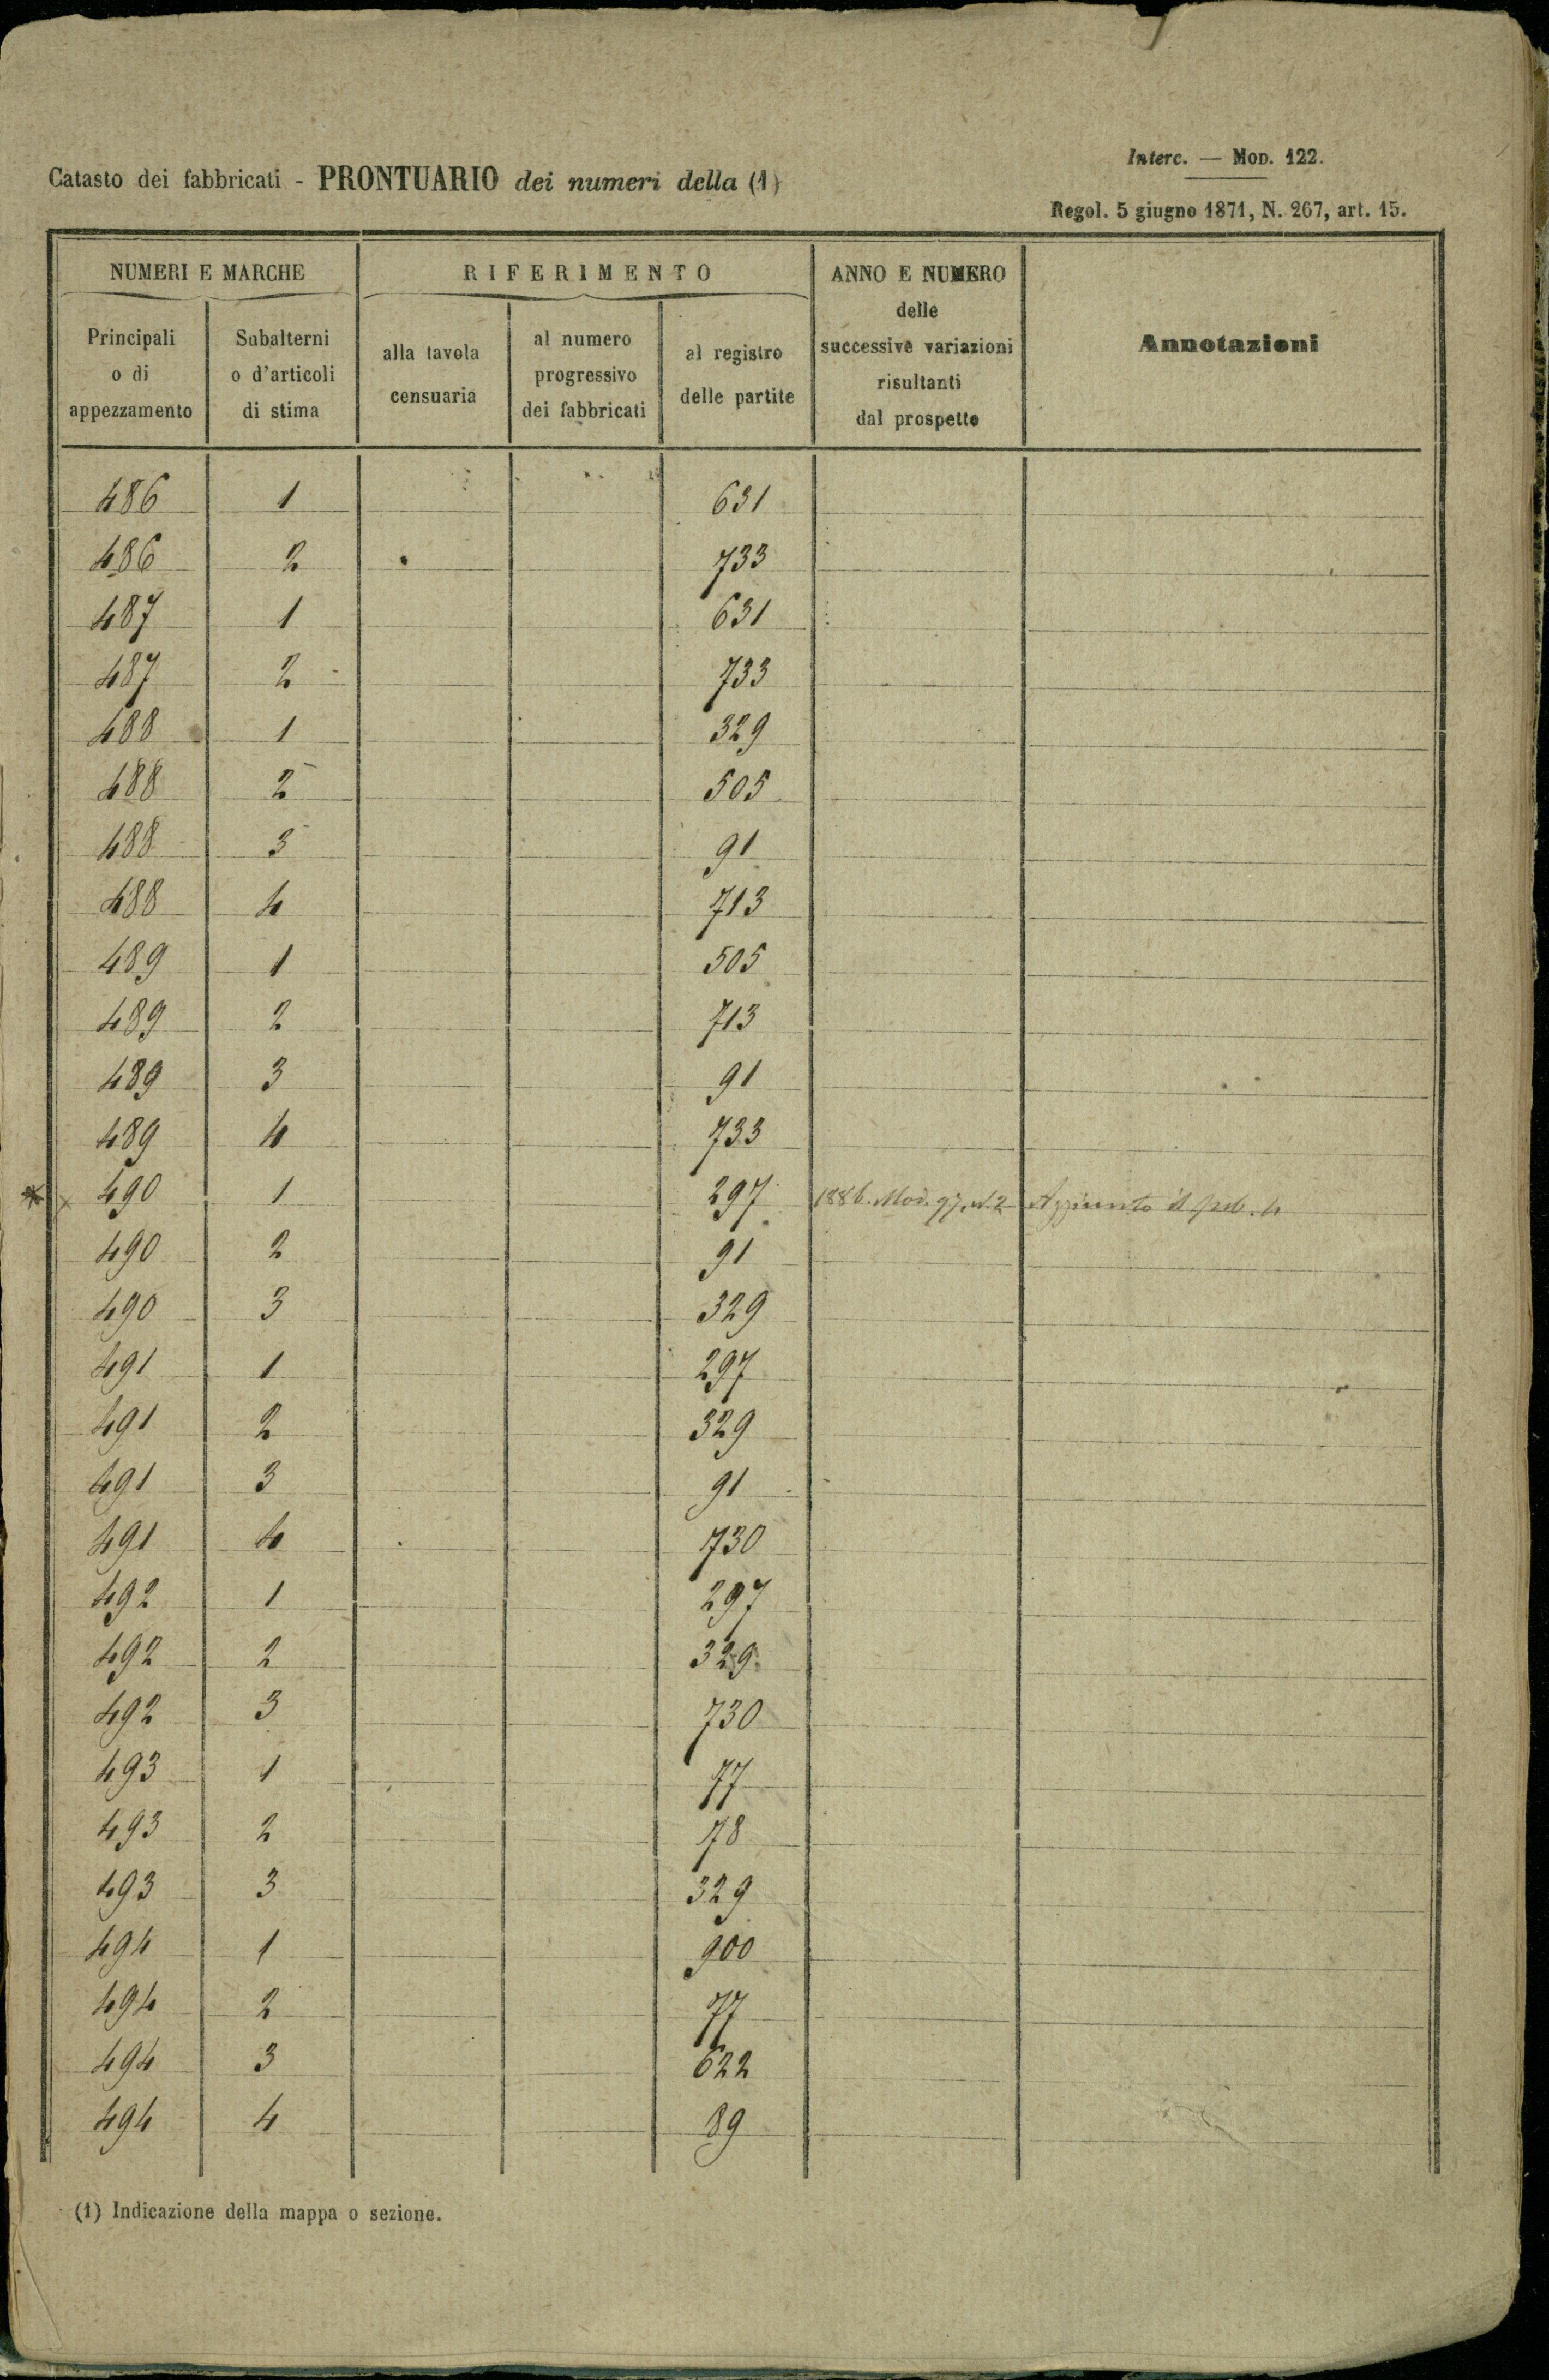 Interc. — Mod. 122.
Catasto dei fabbricati - PRONTUARIO dei numeri della (1)
Regol. 5 giugno 1871, N. 267, art. 15.
NUMERI E MARCHE RIFERIMENTO ANNO E NUMERO delle successive variazioni risultanti dal prospetto Annotazioni
Principali o di appezzamento Subalterni o d'articoli di stima alla tavola censuaria al numero progressivo dei fabbricati al registro delle partite
486 1 631
486 2 733
487 1 631
487 2 733
488 1 329
488 2 505
488 3 91
488 4 713
489 1 505
489 2 713
489 3 91
489 4 733
* x 490 1 297 1886. Mod. 97. N. 2 Aggiunto il sub. 4
490 2 91
490 3 329
491 1 297
491 2 329
491 3 91
491 4 730
492 1 297
492 2 329
492 3 730
493 1 77
493 2 78
493 3 329
494 1 900
494 2 77
494 3 622
494 4 89
(1) Indicazione della mappa o sezione.